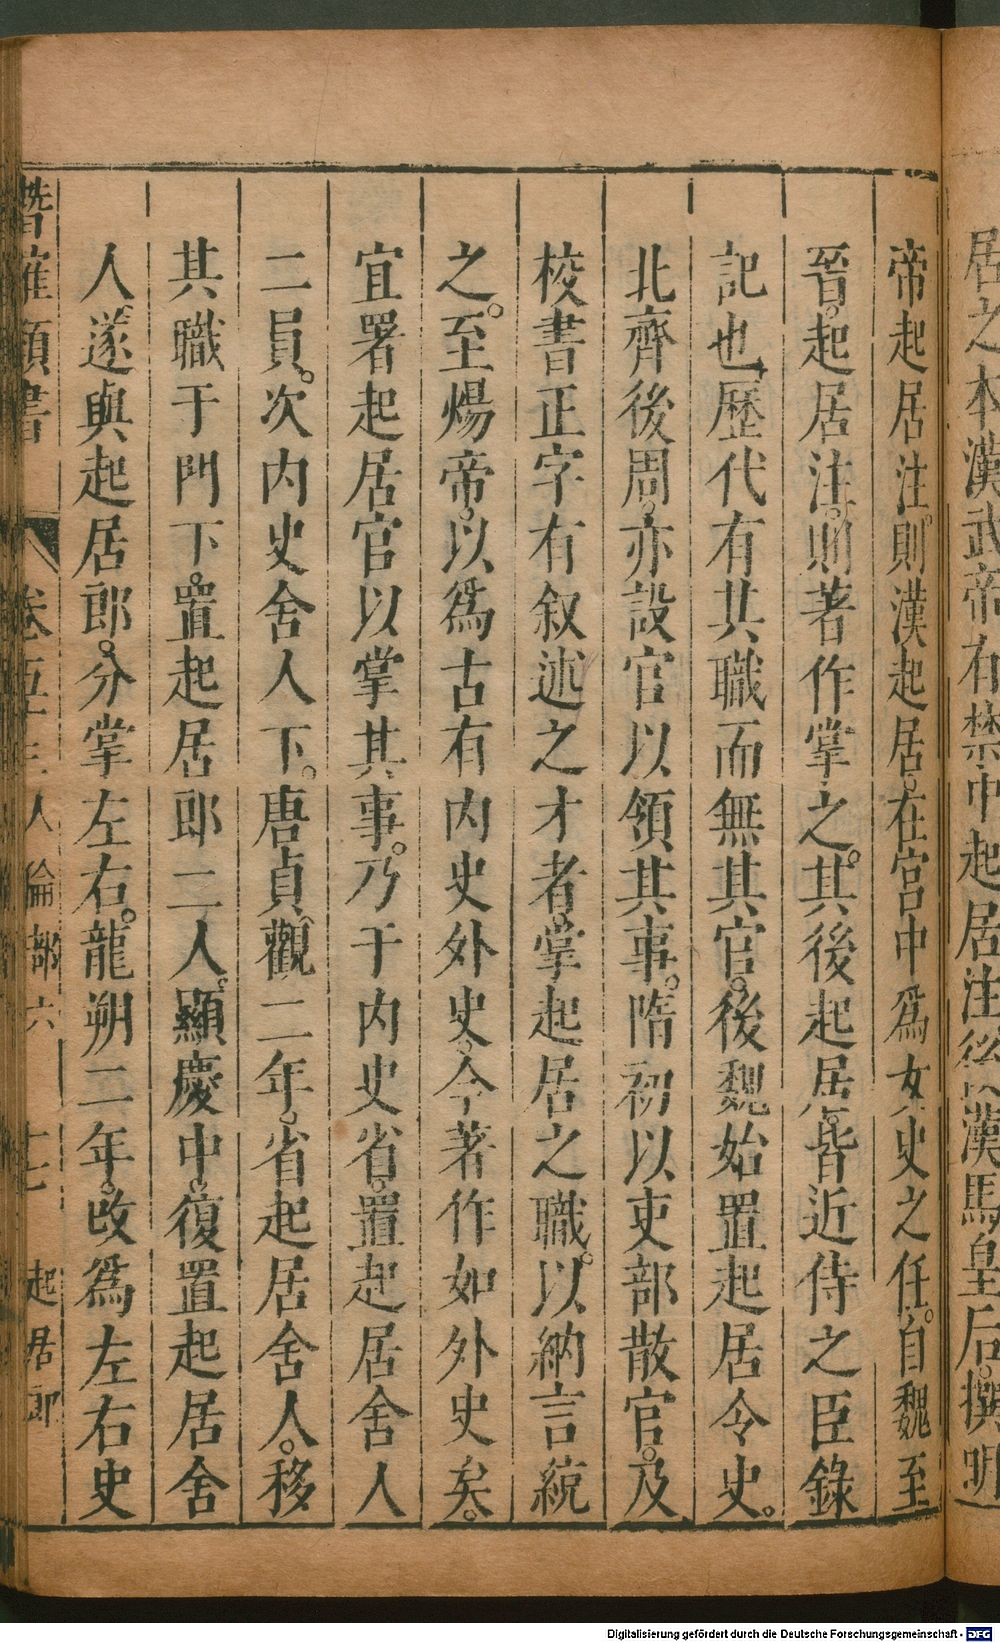 居之本漢武帝有禁中起居注後漢馬皇后撰明
帝起居注則漢起居在宮中為女史之任自魏至
晉起居注則著作掌之其後起居皆近侍之臣錄
記也歷代有其職而無其官後魏始置起居令史
北齊後周亦設官以領其事隋初以吏部散官及
校書正字有叙述之才者掌起居之職以納言統
之至煬帝以爲古有內史外史今著作如外史矣
宜署起居官以掌其事乃于內史省置起居舍人
二員次內史舍人下唐貞觀二年省起居舍人移
其職于門下置起居郎二人顯慶中復置起居舍
人遂與起居郎分掌左右龍朔二年改爲左右史
潛確類書 卷五十三 人倫部六 十七 起居郎
Digitalisierung gefördert durch die Deutsche Forschungsgemeinschaft - DFG